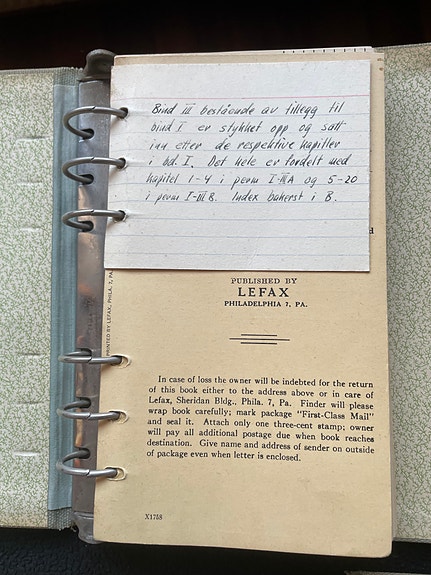 Bind III bestående av tillegg til
bind I er stykket opp og satt
inn etter de respektive kapitler
i bd. I. Det hele er fordelt med
kapitel 1-4 i perm I-IIIA og 5-20
i perm I-III B. Index bakerst i B.
PRINTED BY LEFAX, PHILA. 7, PA.
PUBLISHED BY
LEFAX
PHILADELPHIA 7, PA.
In case of loss the owner will be indebted for the return
of this book either to the address above or in care of
Lefax, Sheridan Bldg., Phila. 7, Pa. Finder will please
wrap book carefully; mark package "First-Class Mail"
and seal it. Attach only one three-cent stamp; owner
will pay all additional postage due when book reaches
destination. Give name and address of sender on outside
of package even when letter is enclosed.
X1758